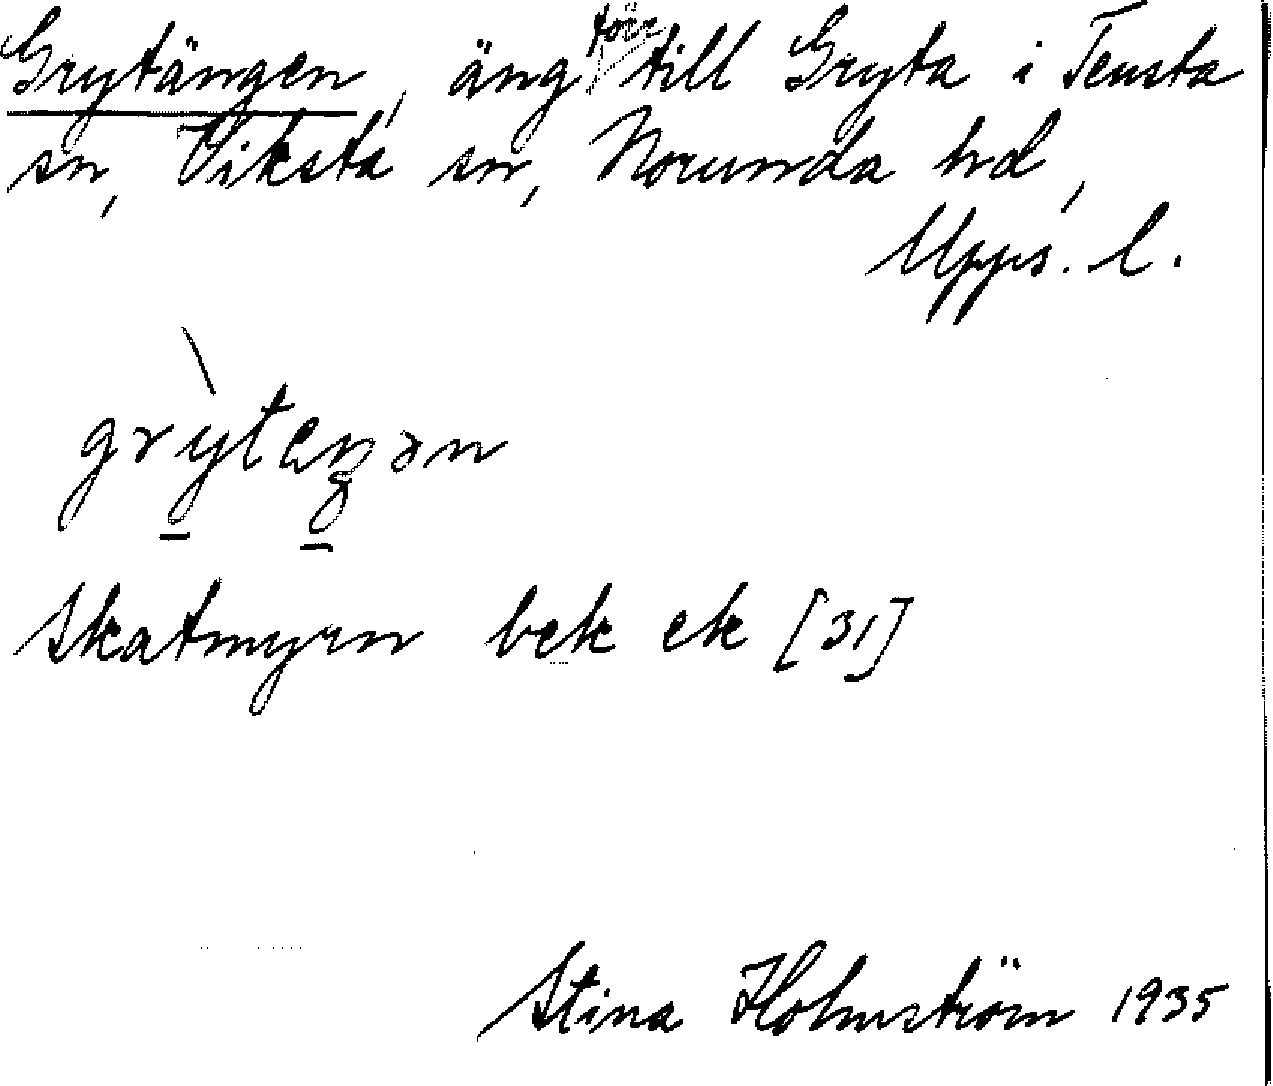 Grytängen, äng förr till Gryta i Tensta
sn, Viksta sn, Norunda hd,
Upps. l.
grỳtęŋən
Skatmyrn bek ek [31]
Stina Holmström 1935